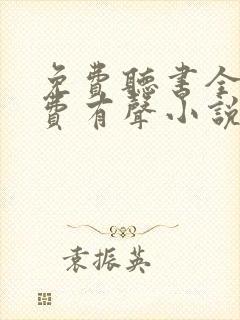 免費聽書全
費有聲小說
袁振英